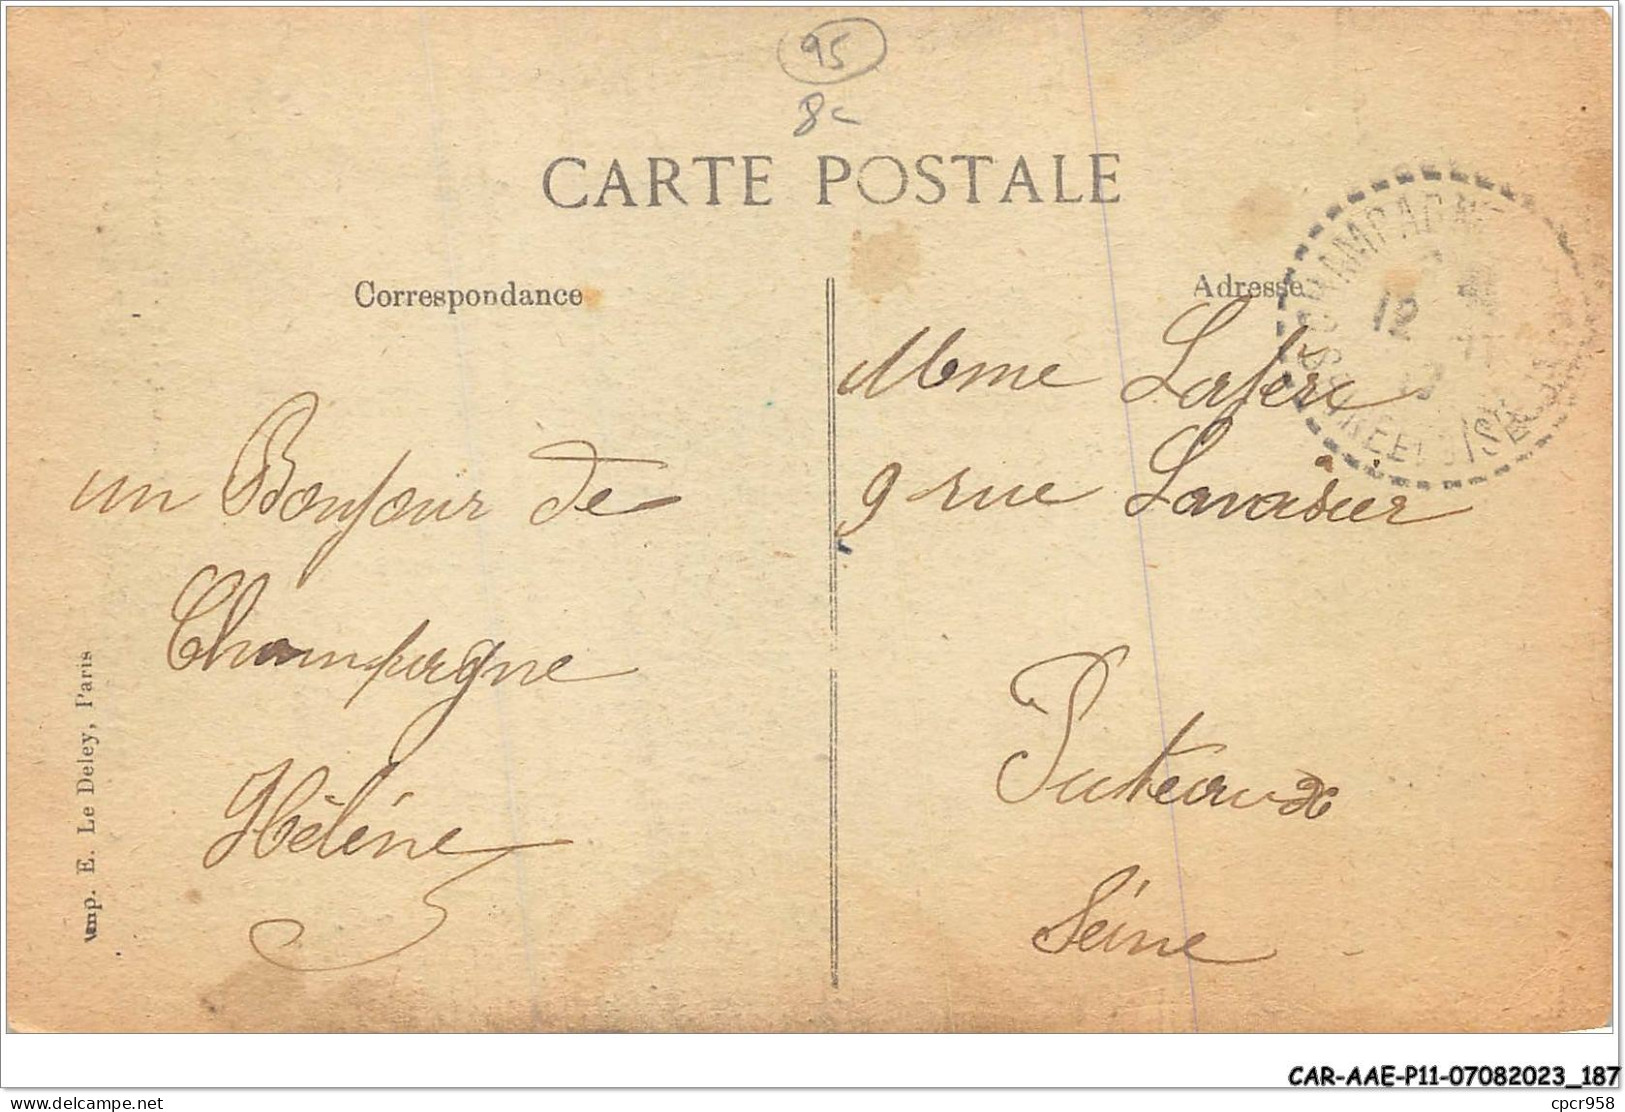 95
8c
CARTE POSTALE
Correspondance
Adresse
un Bonjour de
Champagne
Hélène
Mme
9 rue
Puteaux
Seine
Imp. E. Le Deley, Paris
12
OISE
CAR-AAE-P11-07082023_187
delcampe.net
cpcr958